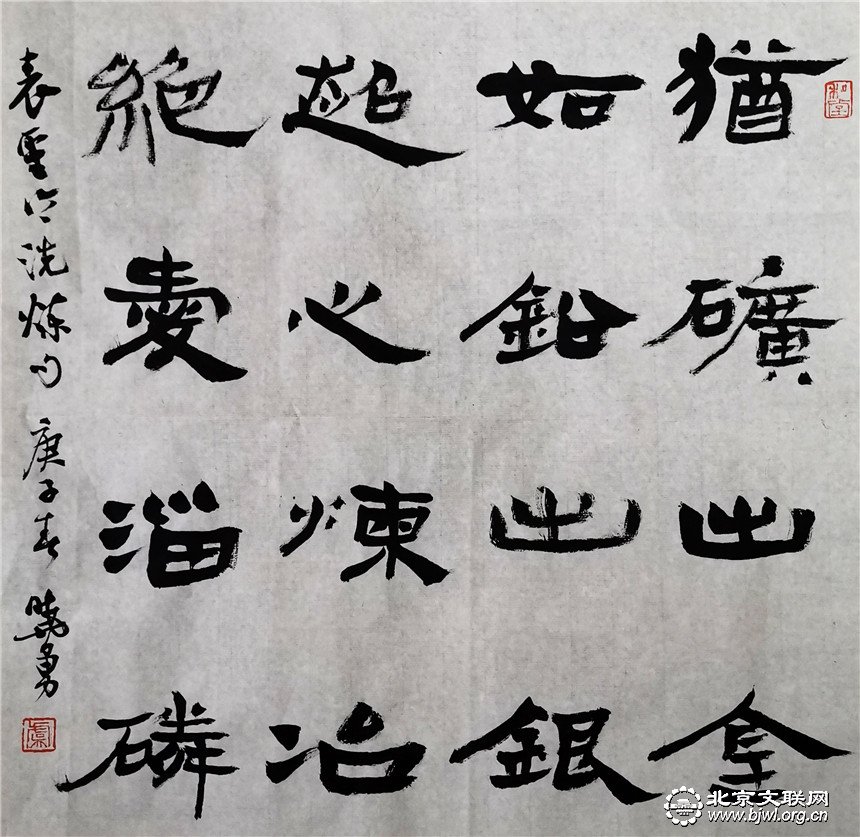 猶礦出金
如鉛出銀
超心煉冶
絕愛淄磷
表聖詩洗煉句 庚子春 曉勇
北京文联网
www.bjwl.org.cn